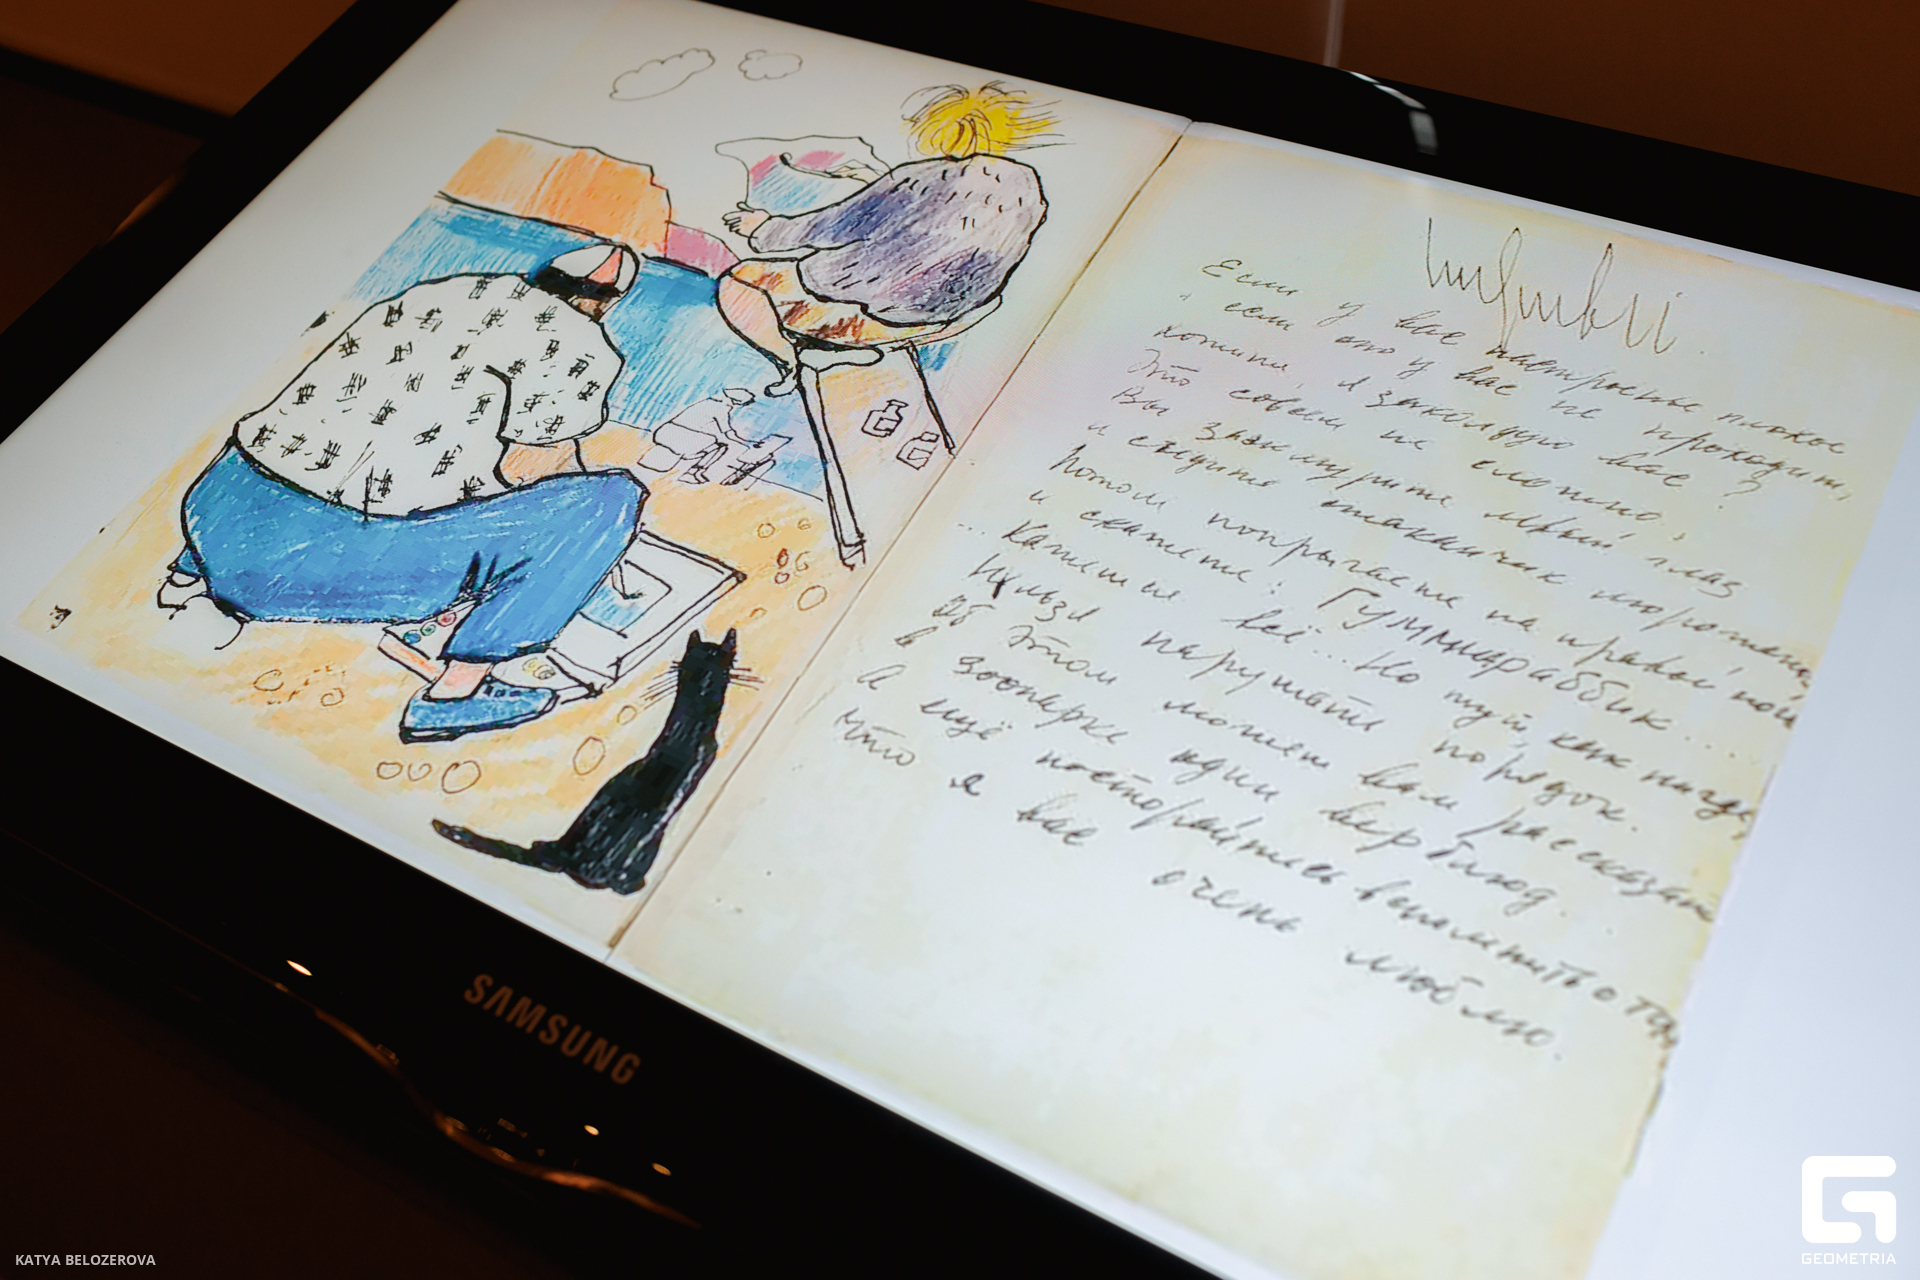 Если у вас настроенье плохое
и если оно у вас не проходит,
хотите, я заколдую вас?
Это совсем не сложно.
Вы зажмурите левый глаз
и съедите стаканчик мороженого
Потом попрыгаете на правой ноге
и скажете: Гуммираббик...
... Кажется всё... Но тут, как нигде,
Нельзя нарушать порядок.
Об этом может вам рассказать
в зоопарке один верблюд.
А ещё постарайтесь вспомнить о том,
что я вас
очень люблю.
SAMSUNG
KATYA BELOZEROVA
GEOMETRIA